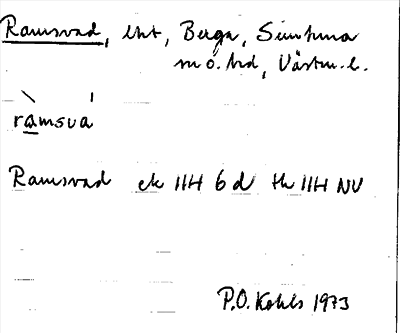 Ramsvad, lht, Berga, Simtuna
m o. hd, Västm. l.
ramsva
Ramsvad ek 11H 6d th 11H NV
P.O. Kohls 1973